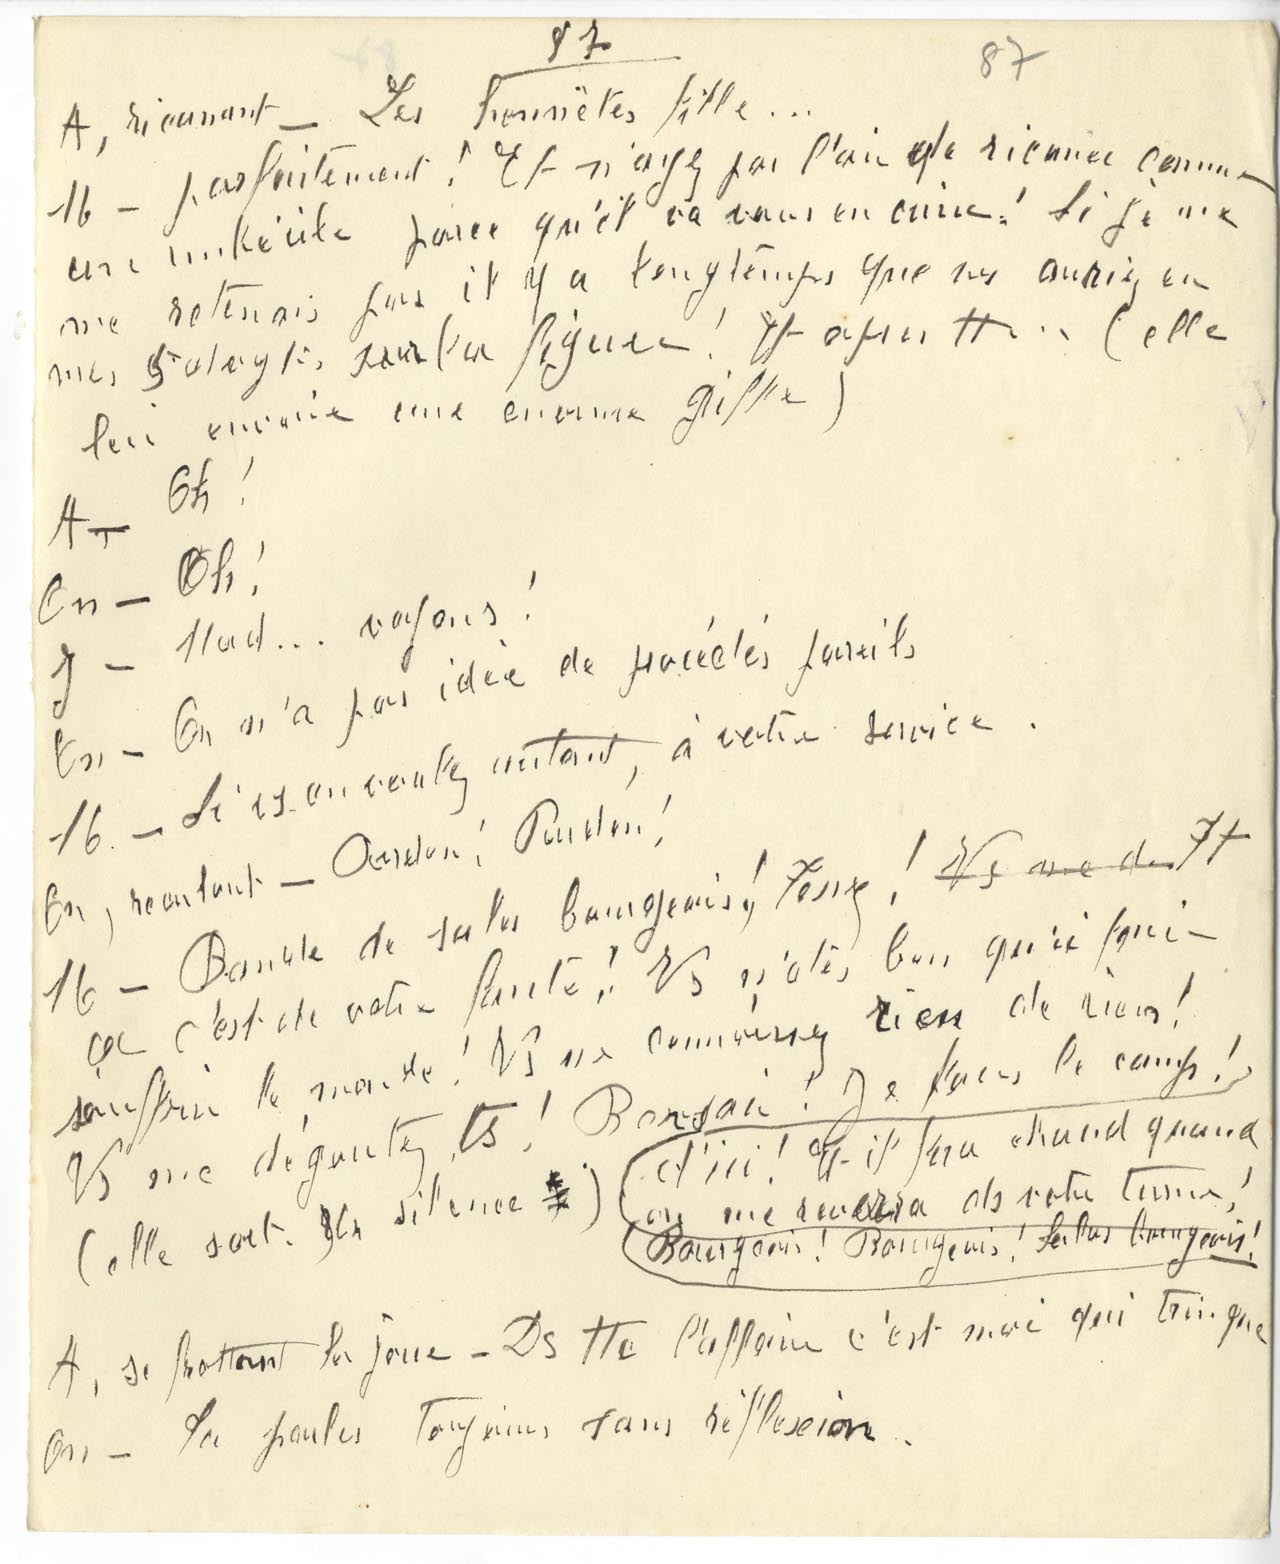 87
87
A, ricanant – Les honnêtes fille...
M – parfaitement ! Et n'ayez pas l'air de ricaner comme
un imbécile parce qu'il va vous en cuire ! Si je me
me retenais pas il y a longtemps que vs auriez eu
mes sur la figure ! Et après tt... (elle
lui envoie une enorme giffle)
A – Oh !
On – Oh !
J – Mad... voyons !
On – On n'a pas idée de procédés pareils
M. – Si vs en voulez autant, à votre service.
On, reculant – Pardon ! Pardon !
M – Bande de sales bourgeois ! Tenez ! Vs me de Tt
ça c'est de votre faute ! Vs n'êtes bon qu'à fai-
souffrir le monde ! Vs ne connaissez rien de rien !
Vs me dégoutez, ts ! Bonsoir ! Je fous le camp !
(elle sort. Un silence) d'ici ! Et il fera chaud quand
on me reverra ds votre turne !
Bourgeois ! Bourgeois ! Sales bourgeois !
A, se frottant la joue – Ds tte l'affaire c'est moi qui trinque
On – Tu parles toujours sans réflexion.